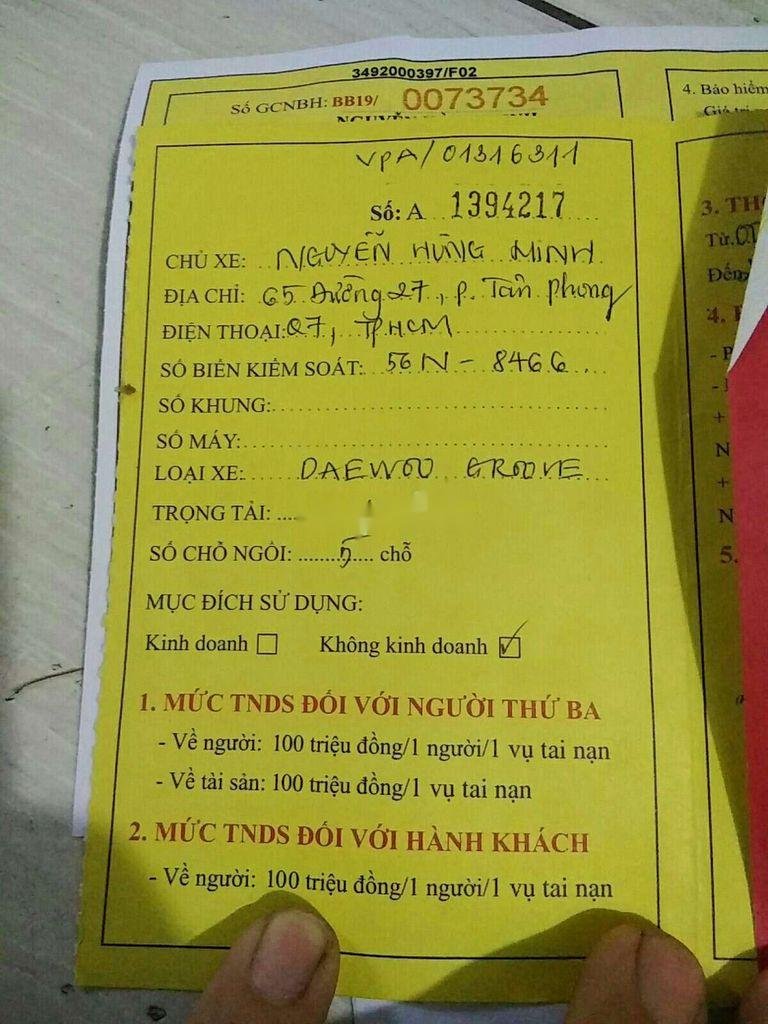 3492000397/F02
Số GCNBH: BB19/ 0073734
4. Bảo hiểm
VPA/01316311
Số: A 1394217
CHỦ XE: NGUYỄN HÙNG MINH
ĐỊA CHỈ: 65 Đường 27, P. Tân Phong
ĐIỆN THOẠI: Q7, TPHCM
SỐ BIỂN KIỂM SOÁT: 56N - 8466
SỐ KHUNG:
SỐ MÁY:
LOẠI XE: DAEWOO GROOVE
TRỌNG TẢI: ....
SỐ CHỖ NGỒI: ........5.... chỗ
MỤC ĐÍCH SỬ DỤNG:
Kinh doanh ☐ Không kinh doanh ☑
1. MỨC TNDS ĐỐI VỚI NGƯỜI THỨ BA
- Về người: 100 triệu đồng/1 người/1 vụ tai nạn
- Về tài sản: 100 triệu đồng/1 vụ tai nạn
2. MỨC TNDS ĐỐI VỚI HÀNH KHÁCH
- Về người: 100 triệu đồng/1 người/1 vụ tai nạn
3. TH
Từ
Đến
4.
5.